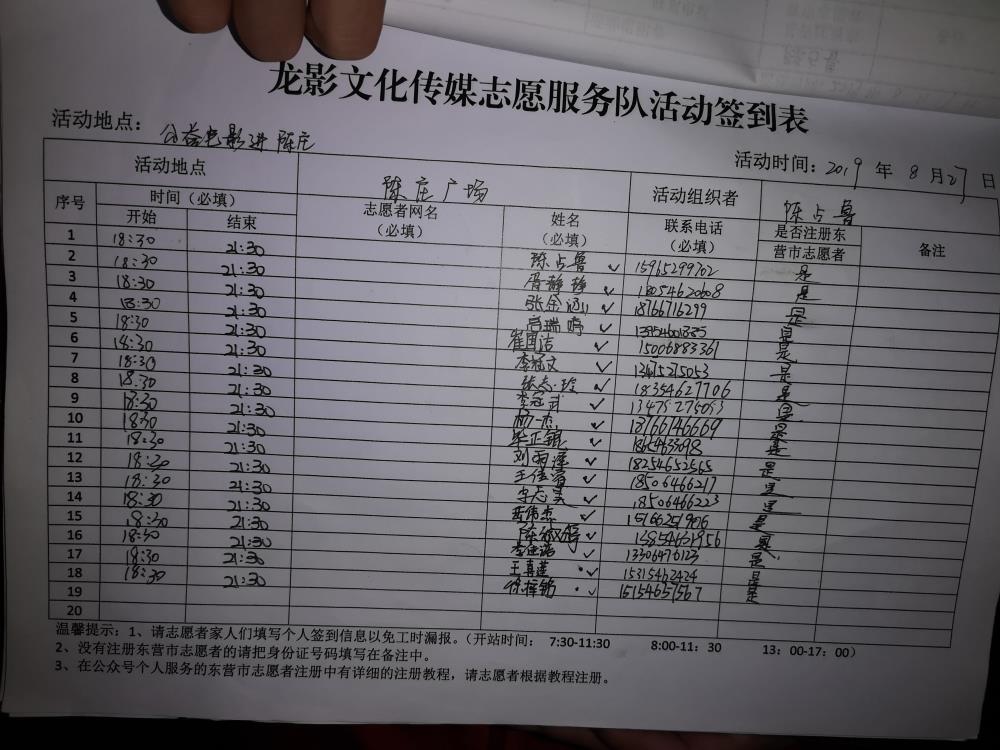 龙影文化传媒志愿服务队活动签到表
活动地点： 公益电影进陈庄
活动时间：2019 年 8 月 27 日
活动地点 陈庄广场 活动组织者 陈占鲁
序号 时间（必填） 志愿者网名（必填） 姓名（必填） 联系电话（必填） 是否注册东营市志愿者 备注
开始 结束
1 18:30 21:30 陈占鲁 ✓ 15965299702 是
2 18:30 21:30 ✓ 18054620608 是
3 18:30 21:30 ✓ 18766716299 是
4 18:30 21:30 ✓ 是
5 18:30 21:30 崔国洁 ✓ 15006883361 是
6 18:30 21:30 李冠文 ✓ 13475275053 是
7 18:30 21:30 ✓ 18354627706 是
8 18:30 21:30 李冠武 ✓ 13475275053 是
9 18:30 21:30 杨杰 ✓ 18766146669 是
10 18:30 21:30 ✓ 是
11 18:30 21:30 刘雨泽 ✓ 18254652565 是
12 18:30 21:30 ✓ 18506466217 是
13 18:30 21:30 ✓ 18506466223 是
14 18:30 21:30 岳伟杰 ✓ 15766251906 是
15 18:30 21:30 ✓ 是
16 18:30 21:30 ✓ 13306476123 是
17 18:30 21:30 王真莲 ✓ 15315462424 是
18 18:30 21:30 徐梓铭 ✓ 15154651567 是
19
20
温馨提示：1、请志愿者家人们填写个人签到信息以免工时漏报。（开站时间： 7:30-11:30 8:00-11：30 13：00-17：00）
2、没有注册东营市志愿者的请把身份证号码填写在备注中。
3、在公众号个人服务的东营市志愿者注册中有详细的注册教程，请志愿者根据教程注册。